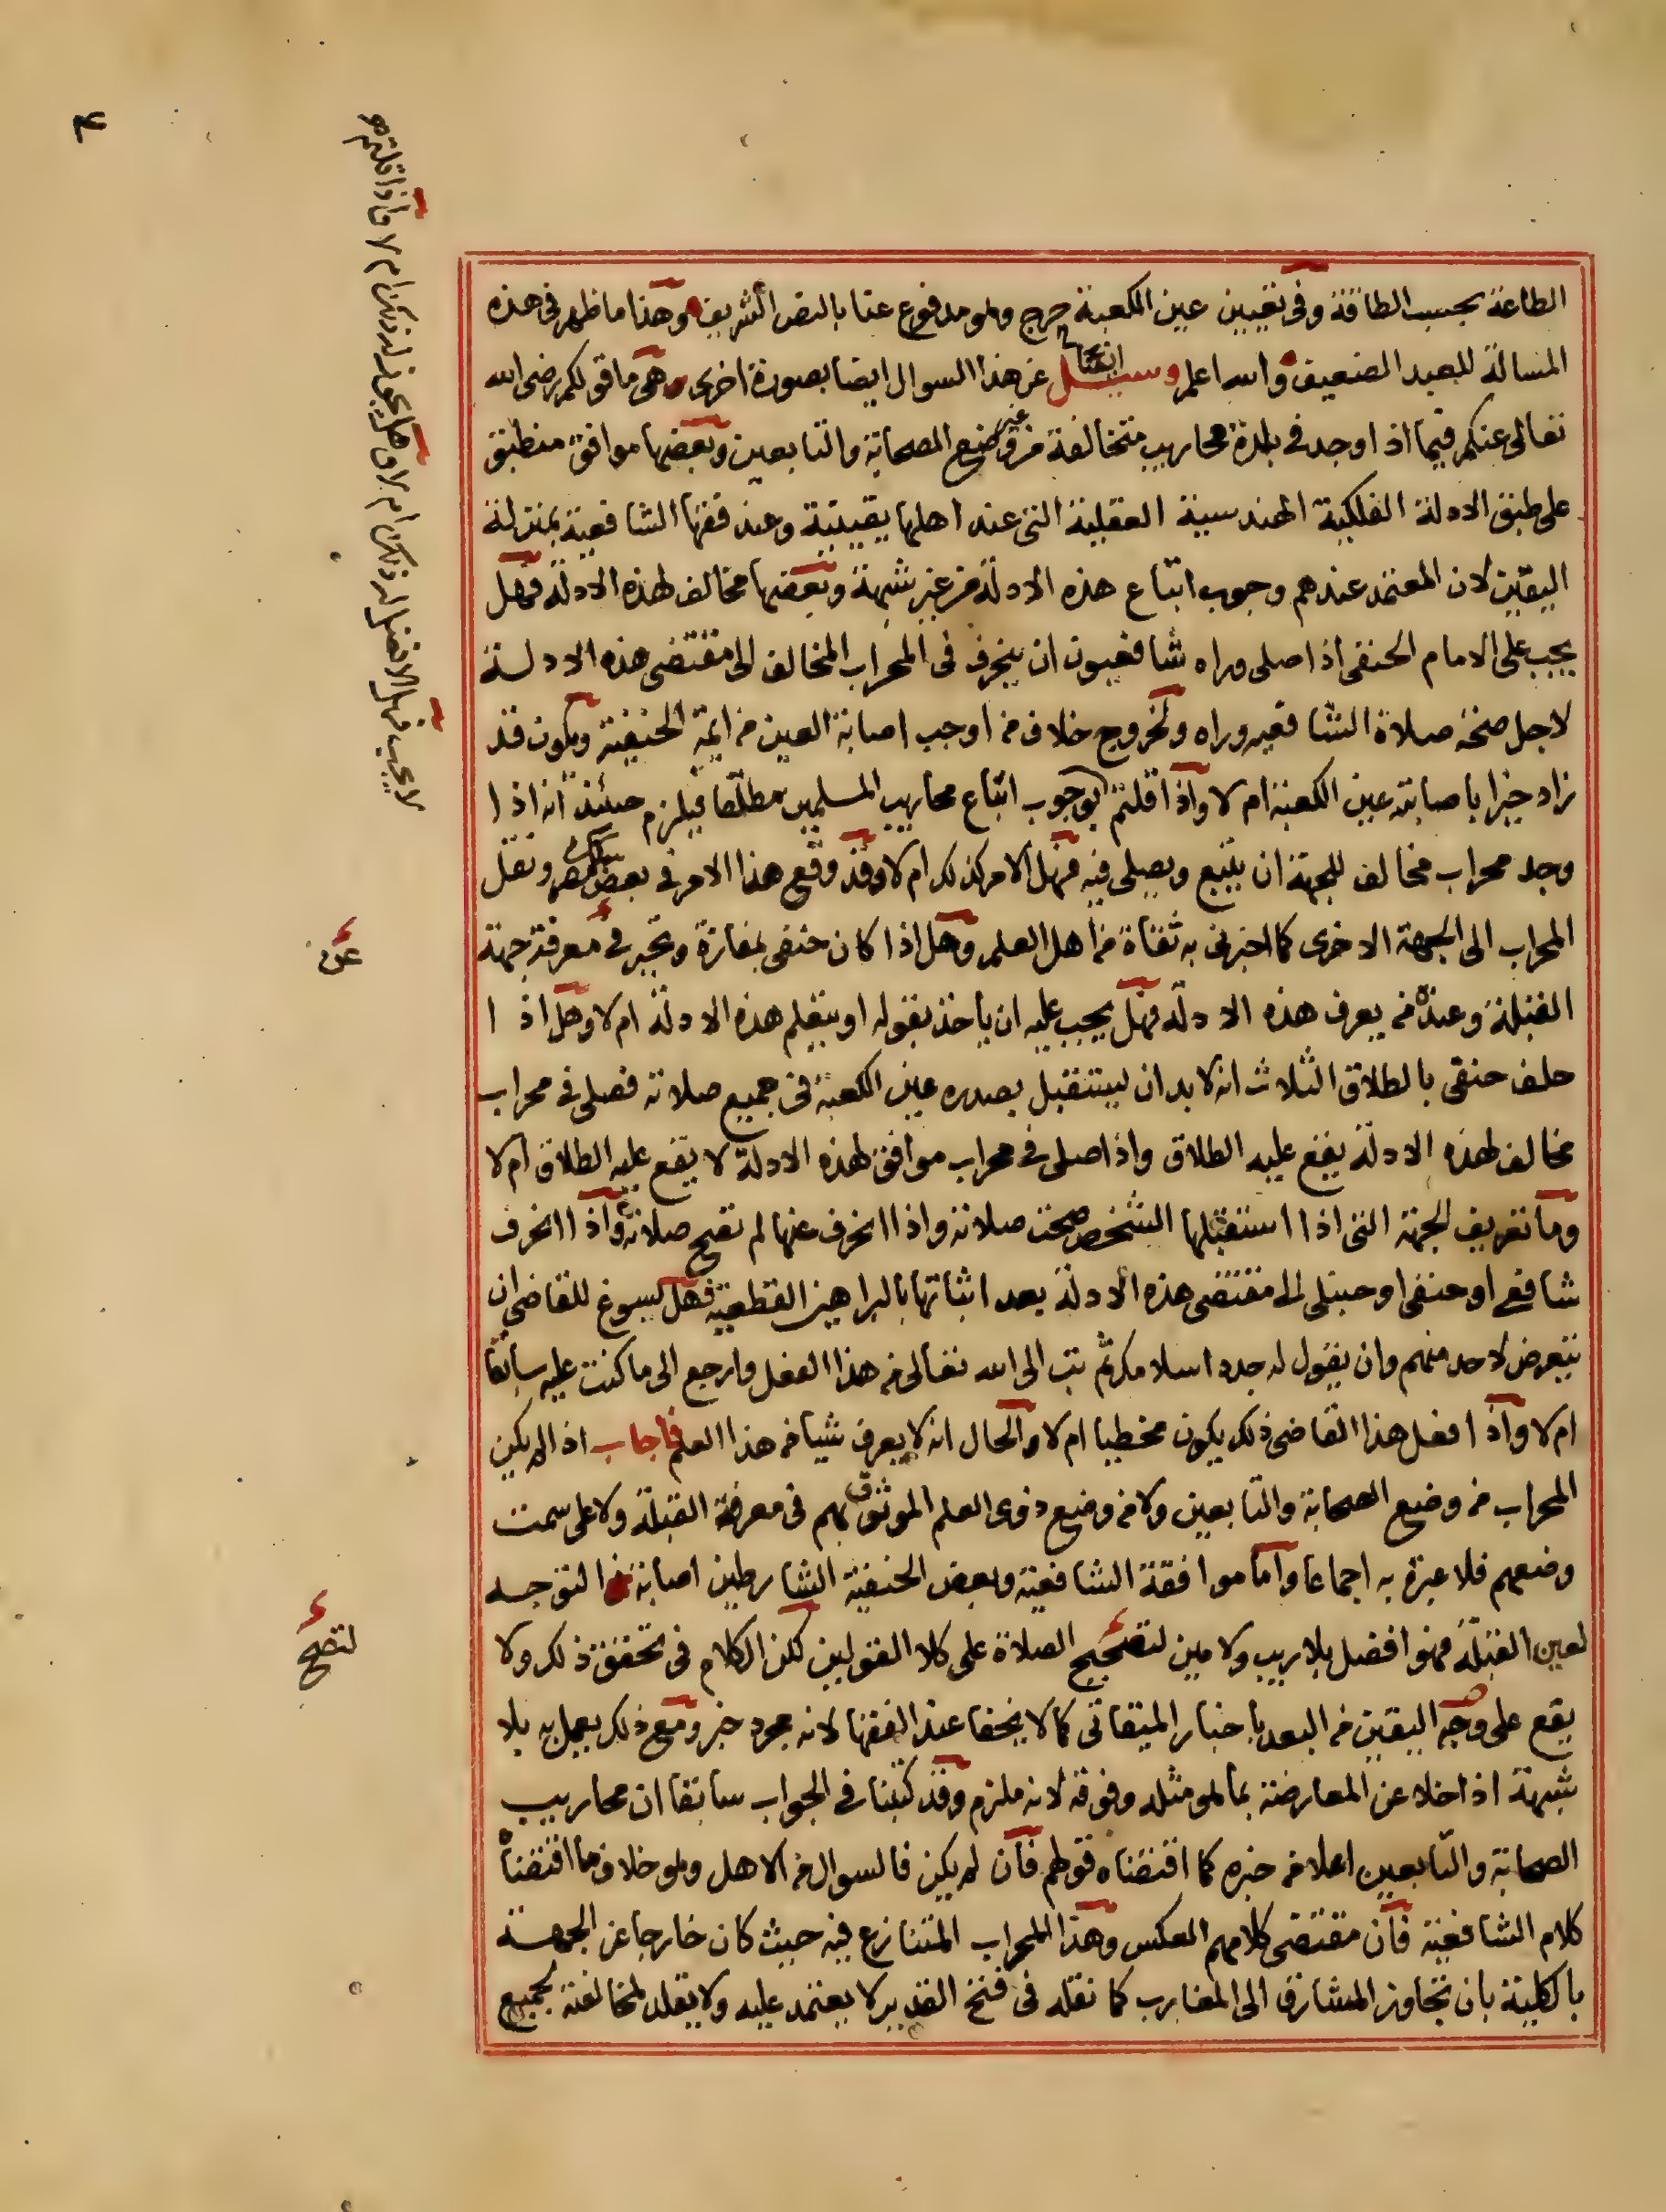 الطاعة بحسب الطاقة وفى تعيين عين الكعبة حرج وهو مدفوع عنا بالنص الشريف وهذا ما ظهر فى هذه
المسالة للعبد الضعيف والله اعلم وسيل ايضا عن هذا السوال ايضا بصورة اخرى وهى ما قولكم رضى الله
تعالى عنكم فيما اذا وجد فى بلدة محاريب متخالفة من غير وضع الصحابة والتابعين وبعضها موافق منطبق
على طبق الادلة الفلكية الهندسية العقلية التى عند اهلها يقينية وعند فقها الشافعية بمنزلة
اليقين لان المعتمد عندهم وجوب اتباع هذه الادلة من غير شبهة وبعضها مخالف لهذه الادلة فهل
يجب على الامام الحنفى اذا صلى وراه شافعيون ان ينحرف فى المحراب المخالف الى مقتضى هذه الادلة
لاجل صحة صلاة الشافعيه وراه ولخروج خلاف من اوجب اصابة العين من ايمة الحنفية ويكون قد
زاد خيرا باصابته عين الكعبة ام لا واذا قلتم بوجوب اتباع محاريب المسلمين مطلقا فيلزم حينئذ انه اذا
وجد محراب مخالف للجهة ان يتبع ويصلى فيه فهل الامر كذلك ام لا وقد وقع هذا الامر فى بعض مصر ونقل
المحراب الى الجهة الاخرى كما اخبرنى به ثقاة من اهل العلم وهل اذا كان حنفى بمفازة وتحير فى معرفة جهة
القبلة وعنده من يعرف هذه الادلة فهل يجب عليه ان ياخذ بقوله او يتعلم هذه الادلة ام لا وهل اذا
حلف حنفى بالطلاق الثلاث انه لا بد ان ليستقبل بصدره عين الكعبة فى جميع صلاته فصلى فى محراب
مخالف لهذه الادلة يقع عليه الطلاق واذا صلى فى محراب موافق لهذه الادلة لا يقع عليه الطلاق ام لا
وما تعريف الجهة التى اذا استقبلها الشخص صحت صلاته واذا انحرف عنها لم تصح صلاته واذا انحرف
شافعى او حنفى او حنبلى الى مقتضى هذه الادلة بعد اثباتها بالبراهين القطعية فهل يسوغ للقاضى ان
يتعرض لاحد منهم وان يقول له جدد اسلامك ثم تب الى الله تعالى من هذا الفعل وارجع الى ما كنت عليه سابقا
ام لا واذا فعل هذا القاضى ذلك يكون مخطيا ام لا والحال انه لا يعرف شيا من هذا العلم فاجاب اذا لم يكن
المحراب من وضع الصحابة والتابعين ولا من وضع ذوى العلم الموثوق بهم فى معرفة القبلة ولا على سمت
وضعهم فلا عبرة به اجماعا واما موافقة الشافعية وبعض الحنفية الشارطين اصابة التوجه
لعين القبلة فهو افضل بلا ريب ولا مين لتصحيح الصلاة على كلا القولين لكن الكلام فى تحقق ذلك ولا
يقع على وجه اليقين من البعد باخبار الميقاتى كما لا يخفا عند الفقها لانه مجرد خبر ومع ذلك يعمل به بلا
شبهة اذا خلا عن المعارضة بما هو مثله وفوقه لانه ملزم وقد كتبنا فى الجواب سابقا ان محاريب
الصحابة والتابعين اعلا من خبره كما اقتضاه قولهم فان لم يكن فالسوال من الاهل وهو خلاف ما اقتضاه
كلام الشافعية فان مقتضى كلامهم العكس وهذا المحراب المتنازع فيه حيث كان خارجا عن الجهة
بالكلية بان تجاوز المشارق الى المغارب كما نقله فى فتح القدير لا يعتمد عليه ولا يقلد لمخالفته لجميع
لا يجب فهل الافضل له ذلك ام لا وهل يجوز له ذلك ام لا فاذا قلتم
عن
لتصح
٤